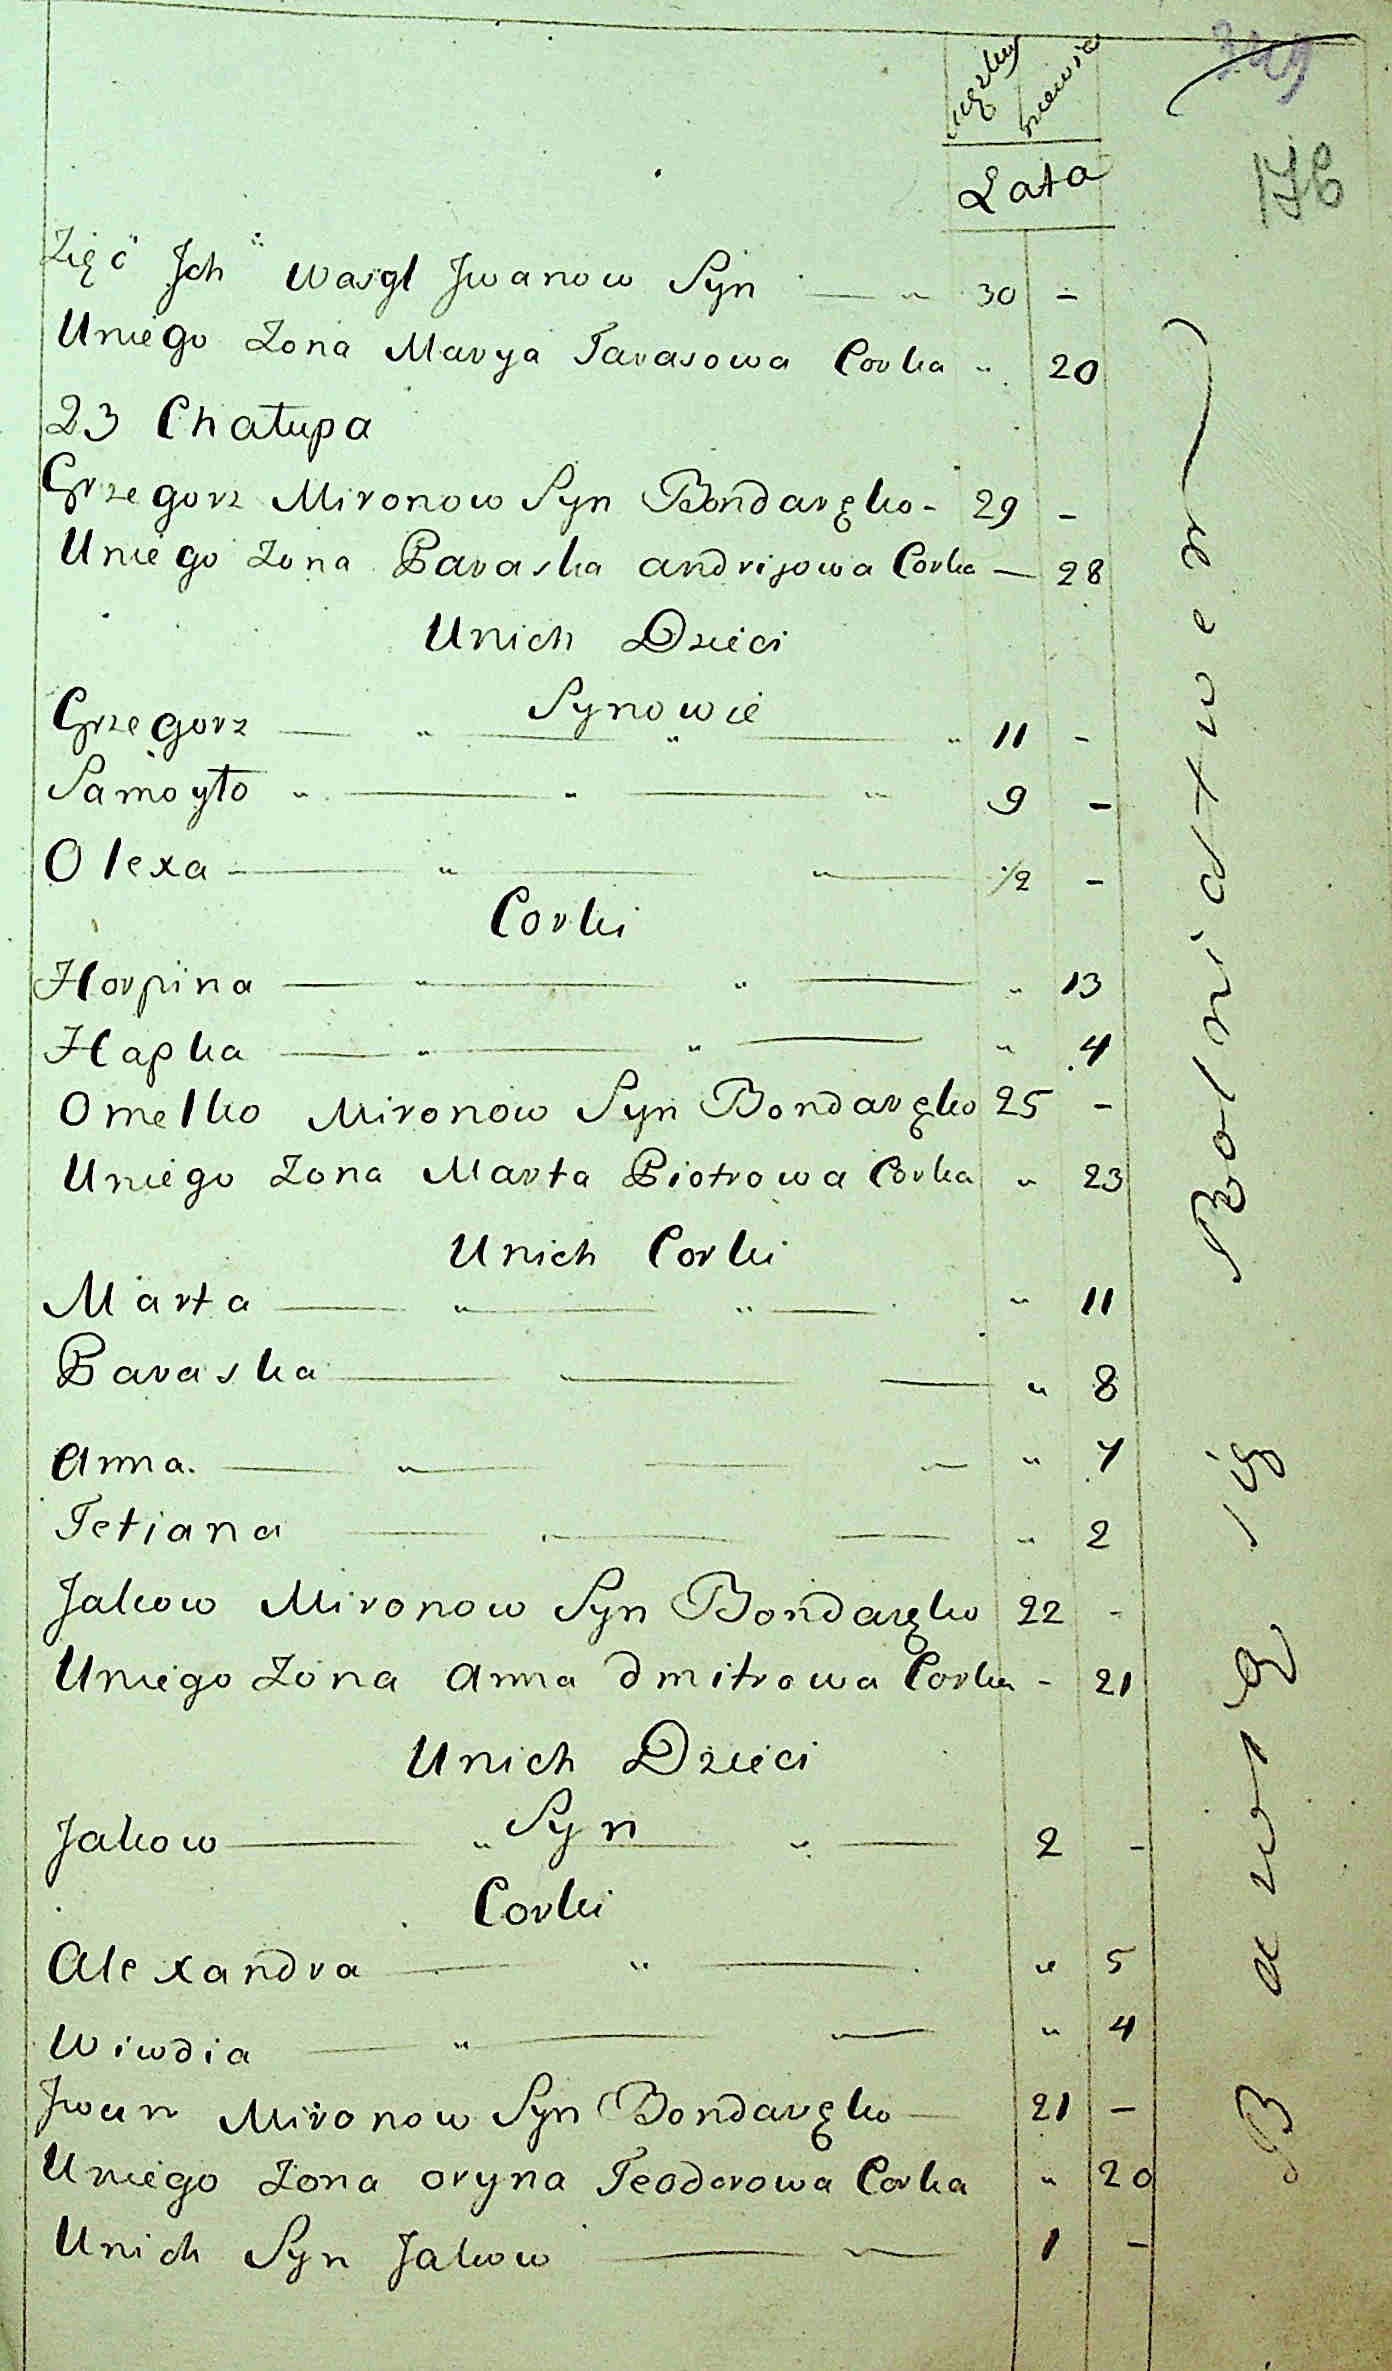 męzkie niewie
Lata
Zięć Ich Wasyl Jwanow Syn — " 30 -
Uniego Zona Marya Tarasowa Corka " 20
23 Chałupa
Grzegorz Mironow Syn Bondaręko - 29 -
Uniego Zona Paraska andrijowa Corka — 28
Unich Dzieci
Synowie
Grzegorz — " — " — " 11 -
Samoyło " — " — " 9 -
Olexa — " — " — 1/2 -
Corki
Horpina — " — " — " 13
Hapka — " — " — " 4
Omelko Mironow Syn Bondaręko 25 -
Uniego Zona Marta Piotrowa Corka " 23
Unich Corki
Marta — " — " — " 11
Paraska — " — — " 8
Anna. — " — " — " 7
Tetiana — " — — " 2
Jakow Mironow Syn Bondaręko 22 -
Uniego Zona Anna dmitrowa Corka - 21
Unich Dzieci
Syn
Jakow — " — " — 2 -
Corki
Alexandra — " — " 5
Wiwdia — " — " 4
Jwan Mironow Syn Bondaręko — 21 -
Uniego Zona oryna Teodorowa Corka " 20
Unich Syn Jakow — 1 -
Bawią się Rolnictwem